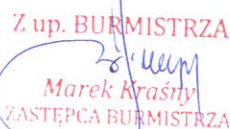 Z up. BURMISTRZA
Marek Kraśny
ZASTĘPCA BURMISTRZA